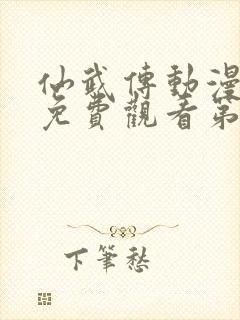 仙武傳動漫
免費觀看第
下筆愁